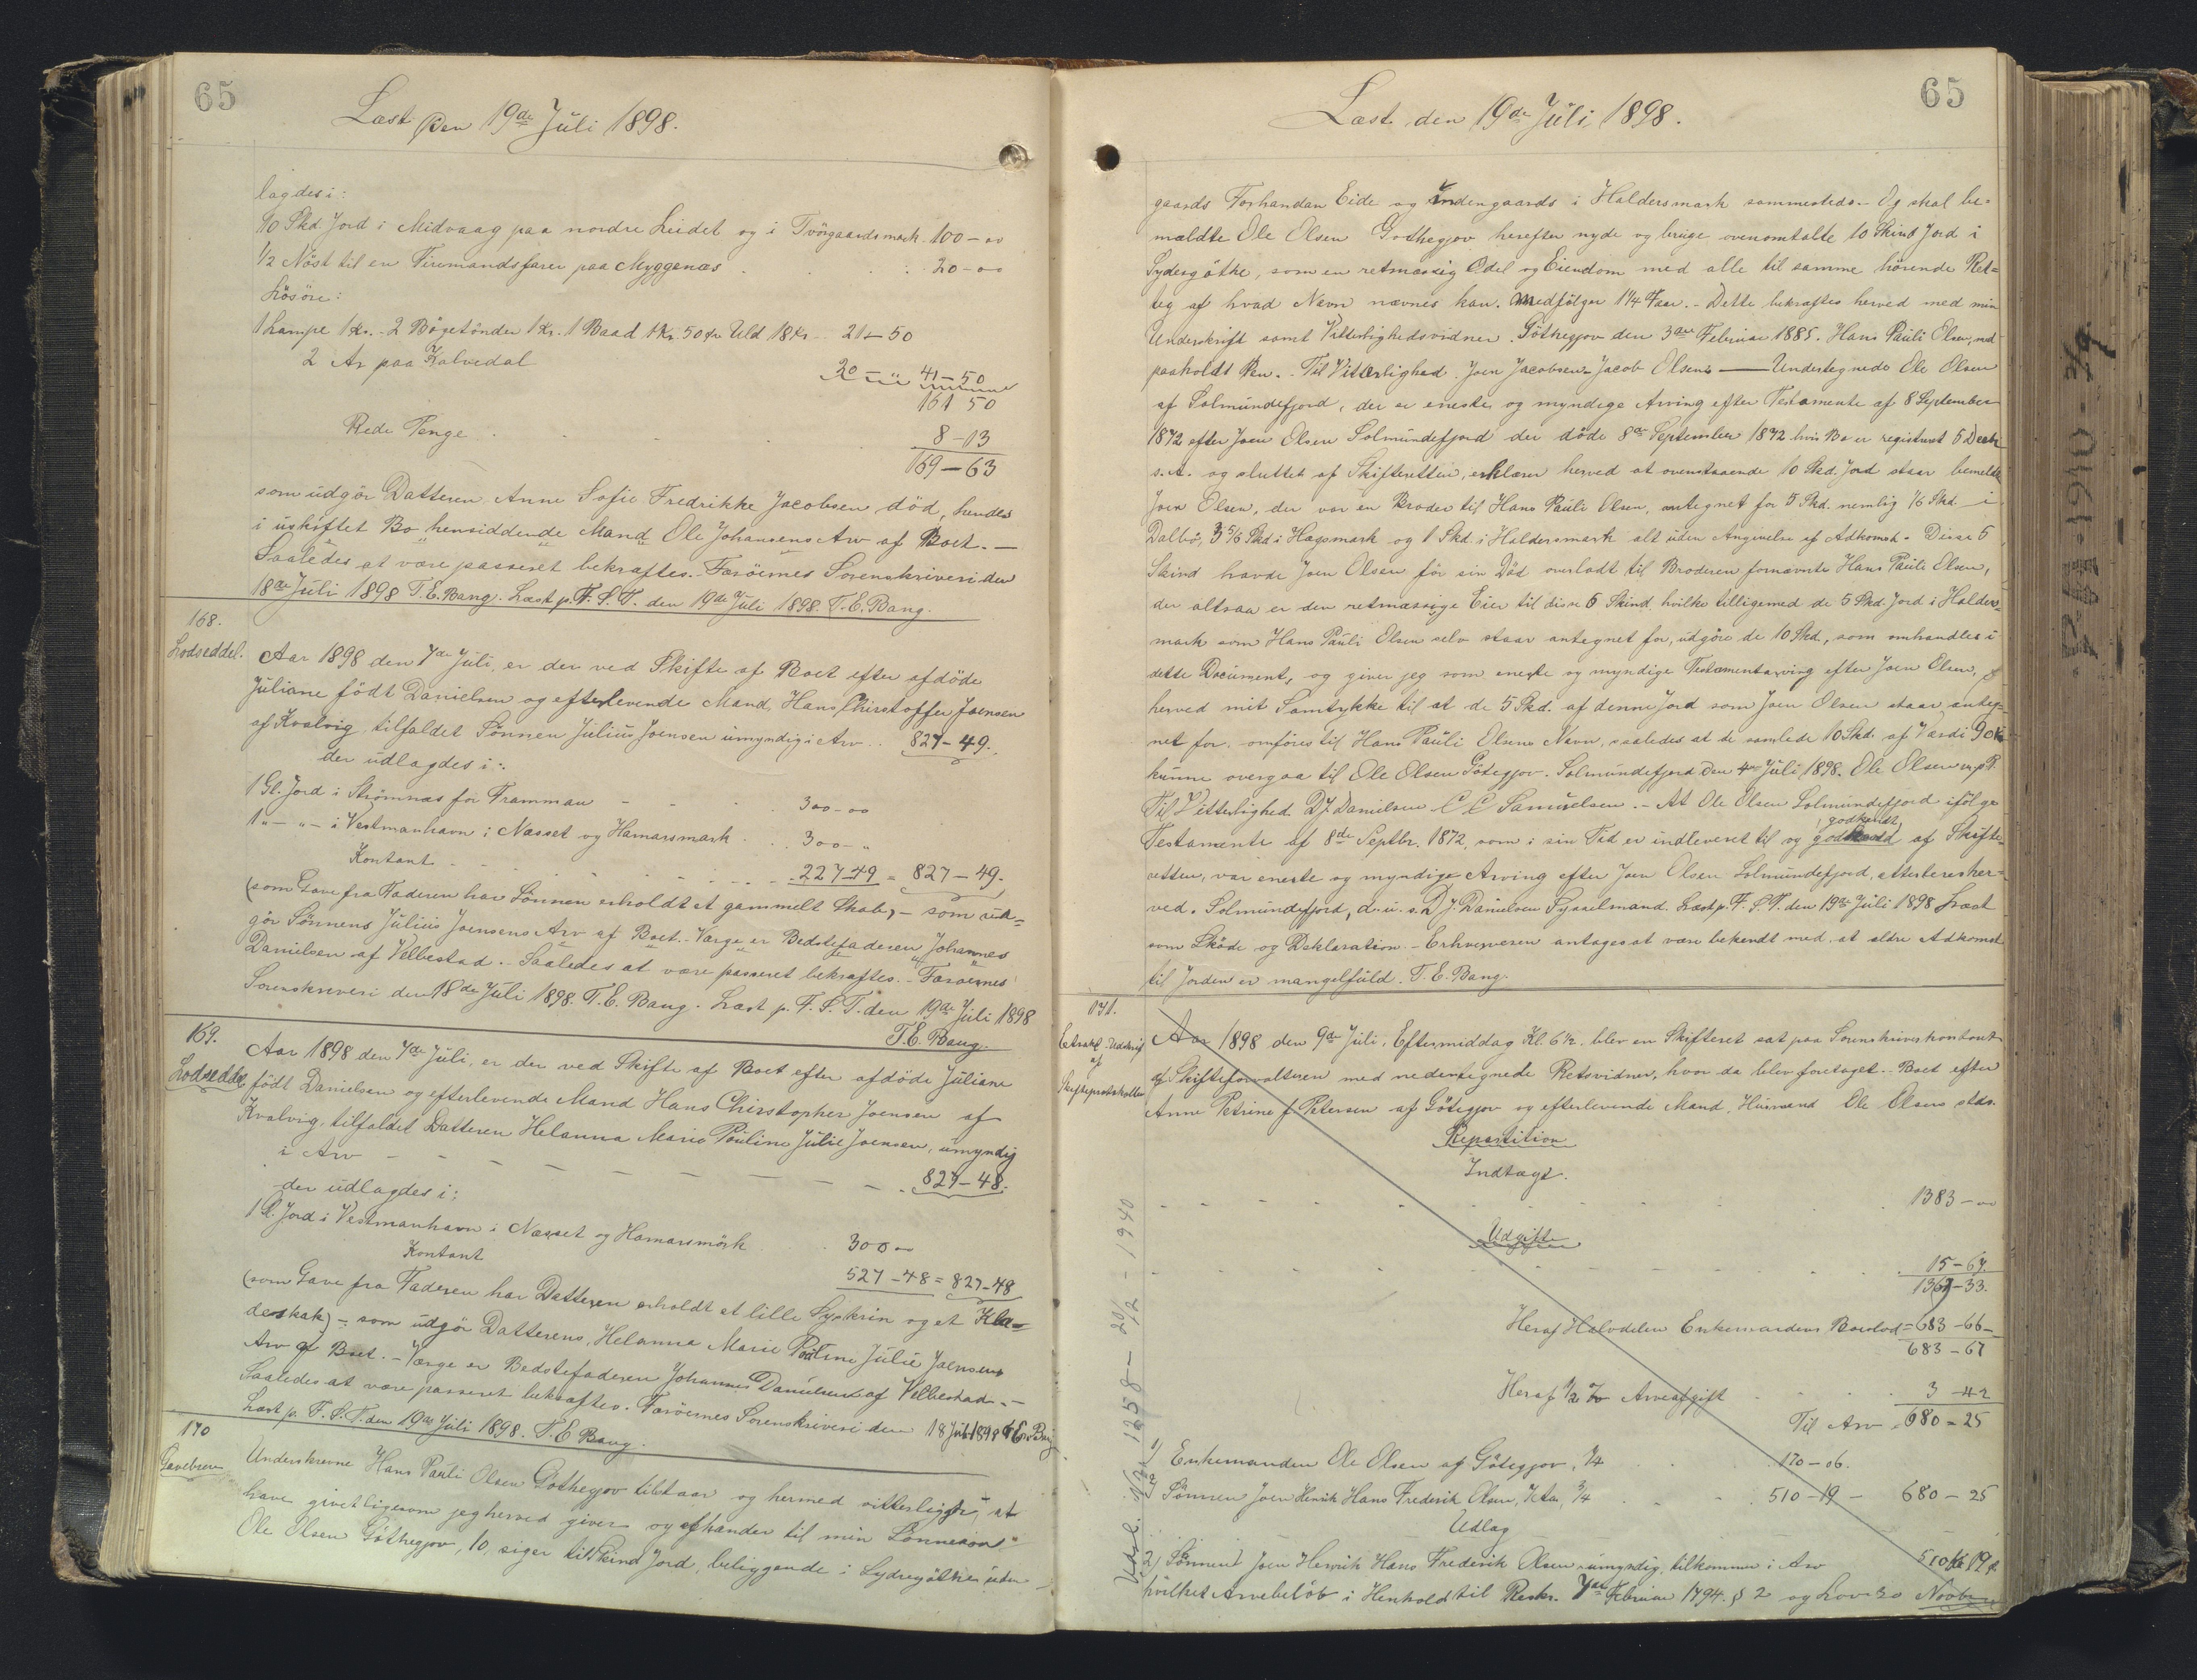 65
Læst den 19de Juli 1898.
lagdes i:
10 Skd. Jord i Midvaag paa nordre Leidet og i Tvørgaardsmark 100-00
1/2 Nöst til en Firemandsfarer paa Myggenæs . . . 20-00
Lösöre:
1 Lampe 1 Kr. - 2 Bögetönder 1 Kr. 1 Baad 1 Kr. 50 Øre Uld 18 Kr. - 21-50
2 Ar paa Kalvedal 20-" 41-50
161 50
Rede Penge . . . 8-13
169-63
som udgör Datteren Anne Sofie Fredrikke Jacobsen död, hendes
i uskiftet Bo hensiddende Mand Ole Johansens Arv af Boet. -
Saaledes at være passeret bekræftes. Færöernes Sorenskriveri den
18de Juli 1898 T. E. Bang. Læst p. F. S. T. den 19de Juli 1898. T. E. Bang.
168.
Lodseddel.
Aar 1898 den 7de Juli, er der ved Skifte af Boet efter afdöde
Juliane födt Danielsen og efterlevende Mand, Hans Christoffer Joensen
af Kvalvig tilfaldet Sönnen Julius Joensen umyndig i Arv . . 827-49.
der udlagdes i:
1 Gl. Jord i Strömnæs for Framman - - 300-00
1 "-"- i Vestmanhavn i Næsset og Hamarsmark . . 300-"
Kontant - - - 227-49 = 827-49.
(som Gave fra Faderen har Sönnen erholdt et gammelt Skab,) - som ud-
gör Sönnens Julius Joensens Arv af Boet. - Værge er Bedstefaderen Johannes
Danielsen af Velbestad. - Saaledes at være passeret bekræftes. - Færöernes
Sorenskriveri den 18de Juli 1898. T. E. Bang. Læst p. F. S. T. den 19de Juli 1898
T. E. Bang.
169.
Lodseddel.
Aar 1898 den 7de Juli, er der ved Skifte af Boet efter afdöde Juliane
födt Danielsen og efterlevende Mand Hans Christopher Joensen af
Kvalvig, tilfaldet Datteren Helanna Marie Pouline Julie Joensen, umyndig
i Arv - - - - - - - 827-48.
der udlagdes i:
1 Gl. Jord i Vestmanhavn i Næsset og Hamarsmörk 300 00
Kontant 527-48 = 827-48
(som Gave fra Faderen har Datteren erholdt et lille Syskrin og et Klæ-
deskab) - som udgör Datterens, Helanna Marie Pouline Julie Joensens
Arv af Boet. - Værge er Bedstefaderen Johannes Danielsen af Velbestad. -
Saaledes at være passeret bekræftes. Færöernes Sorenskriveri den 18 Juli 1898 T. E. Bang
Læst p. F. S. T. den 19de Juli 1898. T. E. Bang.
170
Gavebrev
Underskrevne Hans Pauli Olsen Göthegjov tilstaar og hermed vitterliggör, at
have givet ligesom jeg herved giver og afhænder til min Sönnesön
Ole Olsen Göthegjov, 10, siger ti Skind Jord, beliggende i Sydregöthe uden-
65
Læst den 19de Juli 1898.
gaards Forhandan Eide og indengaards i Haldersmark sammesteds. - Og skal be-
mældte Ole Olsen Gothegjov herefter nyde og bruge ovenomtalte 10 Skind Jord i
Sydergöthe, som en retmæssig Odel og Eiendom med alle til samme hörende Ret-
tig af hvad Navn nævnes kan. Medfölger 1 1/4 Faar. - Dette bekræftes herved med min
Underskrift samt Vitterlighedsvidner. Göthegjov den 3die Februar 1885. Hans Pauli Olsen, md
paaholdt Pen. - Til Vitterlighed. Joen Jacobsen - Jacob Olsen - Undertegnede Ole Olsen
af Solmundefjord, der er eneste og myndige Arving efter Testamente af 8 September
1872 efter Joen Olsen Solmundefjord der döde 8de September 1872 hvis Bo er registreret 5 Decbr
s. A. og sluttet af Skifteretten, erklærer herved at ovenstaaende 10 Skd. Jord staar bemeldte
Joen Olsen, der var en Broder til Hans Pauli Olsen, antegnet for 5 Skd. nemlig 1/6 Skd - i
Dalbö, 3 5/6 Skd i Hagsmark og 1 Skd. i Haldersmark alt uden Angivelse af Adkomst. - Disse 5
Skind havde Joen Olsen för sin Död overladt til Broderen fornævnte Hans Pauli Olsen,
der altsaa er den retmæssige Eier til disse 5 Skind, hvilke tilligemed de 5 Skd. Jord i Halders-
mark som Hans Pauli Olsen selv staar antegnet for, udgöre de 10 Skd., som omhandles i
dette Document, og giver jeg som eneste og myndige Testamentsarving efter Joen Olsen,
herved mit Samtykke til at de 5 Skd. af denne Jord som Joen Olsen staar anteg-
net for, omföres til Hans Pauli Olsens Navn, saaledes at de samlede 10 Skd. af Værdi 90 Kr
kunne overgaa til Ole Olsen Götegjov. Solmundefjord den 4de Juli 1898. Ole Olsen m. p. P.
Til Vitterlighed D. J. Danielsen C C Samuelsen. - At Ole Olsen Solmundefjord ifölge
Testamente af 8de Septbr. 1872, som i sin Tid er indleveret til og godkendt af Skifte-
retten, var eneste og myndige Arving efter Joen Olsen Solmundefjord, attesteres her-
ved. Solmundefjord, d. u. s. D J. Danielsen Sysselmand. Læst p. F. S. T. den 19de Juli 1898 Læst
som Skøde og Deklaration. - Erhververen antages at være bekendt med, at ældre Adkomst
til Jorden er mangelfuld. T. E. Bang.
171.
Extrakt-Udskrift
af
Skifteprotokollen
Aar 1898 den 9de Juli, Eftermiddag Kl. 6 1/2 blev en Skifteret sat paa Sorenskriverkontoret
af Skifteforvalteren med nedentegnede Retsvidner, hvor da blev foretaget. - Boet efter
Anne Petrine f. Petersen af Götegjov og efterlevende Mand, Husmand Ole Olsens stds.
Repartition
Indtægt.
1383-00
Udgifter
15-67.
1367-33.
Heraf Halvdelen Enkemandens Boeslod = 683-66-
683-67
Heraf 1/2 % Arveafgift . . . 3-42
Til Arv . 680-25
1) Enkemanden Ole Olsen af Götegjov, 1/4 . . 170-06.
2) Sönnen Joen Henrik Hans Frederik Olsen, 3/4 . . . 510-19 - 680-25
Udlag
2) Sönnen Joen Henrik Hans Frederik Olsen umyndig, tilkommer i Arv 510 Kr 19 Ø.
hvilket Arvebelöb i Henhold til Reskr. 7de Februar 1794. § 2 og Lov 30 Novbr
Vedk. No 1258 - 20/2 - 1940